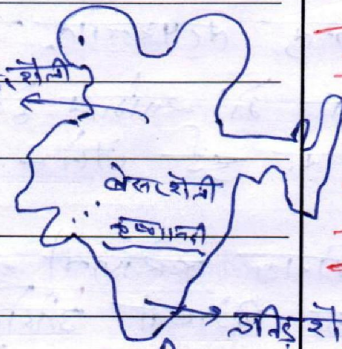 शैली
बेसर शैली
कृष्णा नदी
द्रविड़ शै